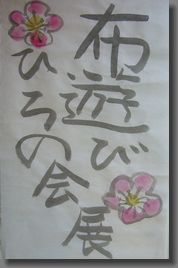 布遊び
ひろの会
展